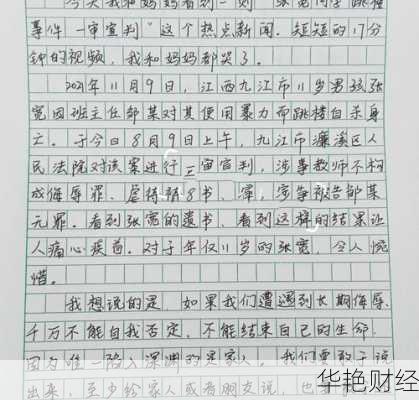 今天我和妈妈看到一则
事件 一审宣判"这个热点新闻。短短的17分
钟的视频，我和妈妈都哭了。
2021年11月9日，江西九江市11岁男孩张
宽因班主任邹某对其使用暴力而跳楼自杀身
亡。于今日8月9日上午，九江市濂溪区人
民法院对该案进行一审宣判，涉事教师不构
成侮辱罪、虐待 罪，涉事被告邹某
无罪。看到张宽的遗书，看到这样的结果让
人痛心疾首。对于年仅11岁的张宽，令人惋
惜。
我想说的是，如果我们遭遇到长期侮辱，
千万不能自我否定，不能结束自己的生命，
因为唯一陷入深渊的是家人。我们要敢于说
出来，至少给家人或者朋友说，也
华艳财经